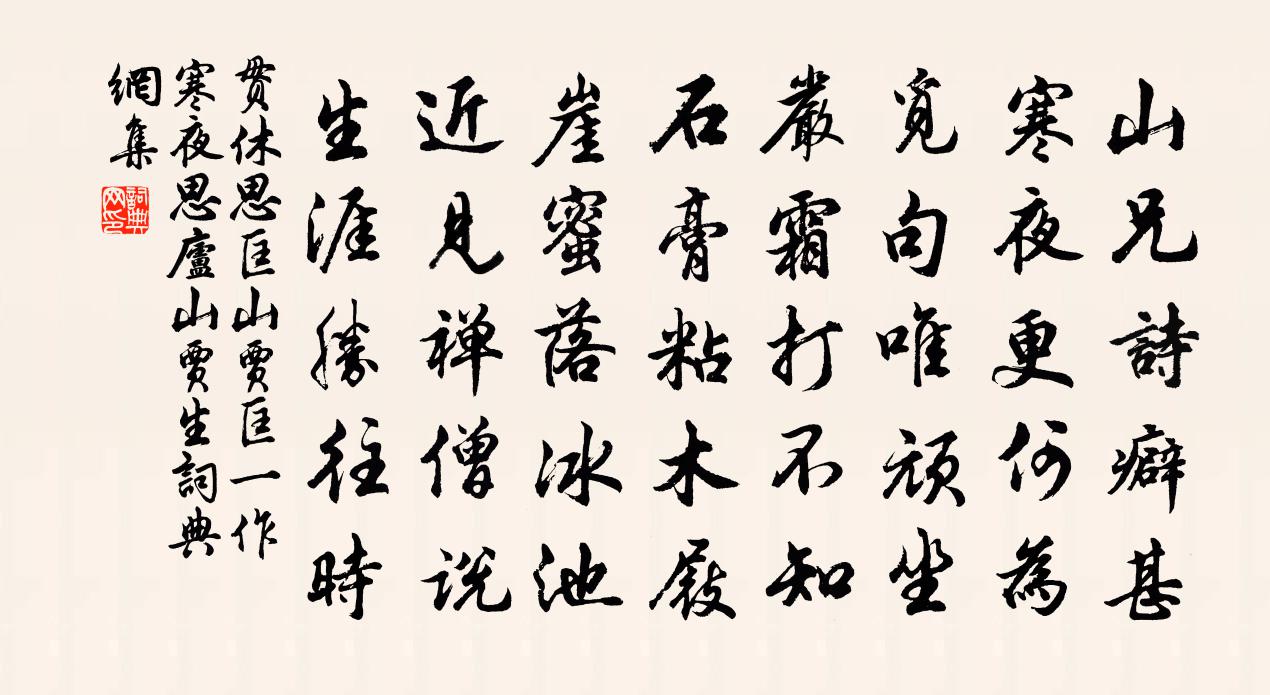 山兄詩癖甚
寒夜更何為
覓句唯頑坐
嚴霜打不知
石膏粘木屐
崖蜜落冰池
近見禅僧説
生涯勝往時
貫休思匡山賈匡一作
寒夜思廬山賈生詞典
網集
詞典
网印